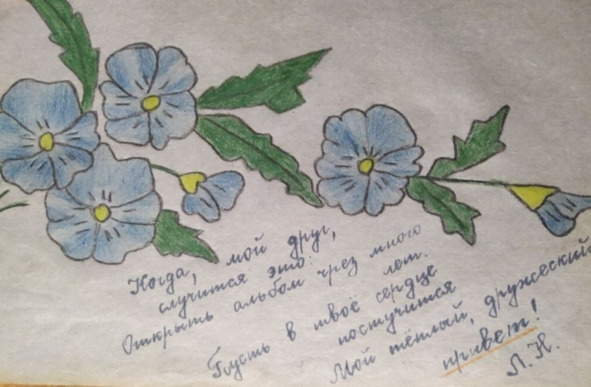 Когда, мой друг,
случится это:
Открыть альбом чрез много
лет.
Пусть в твоё сердце
постучится
Мой тёплый, дружеский
привет!
Л.Н.